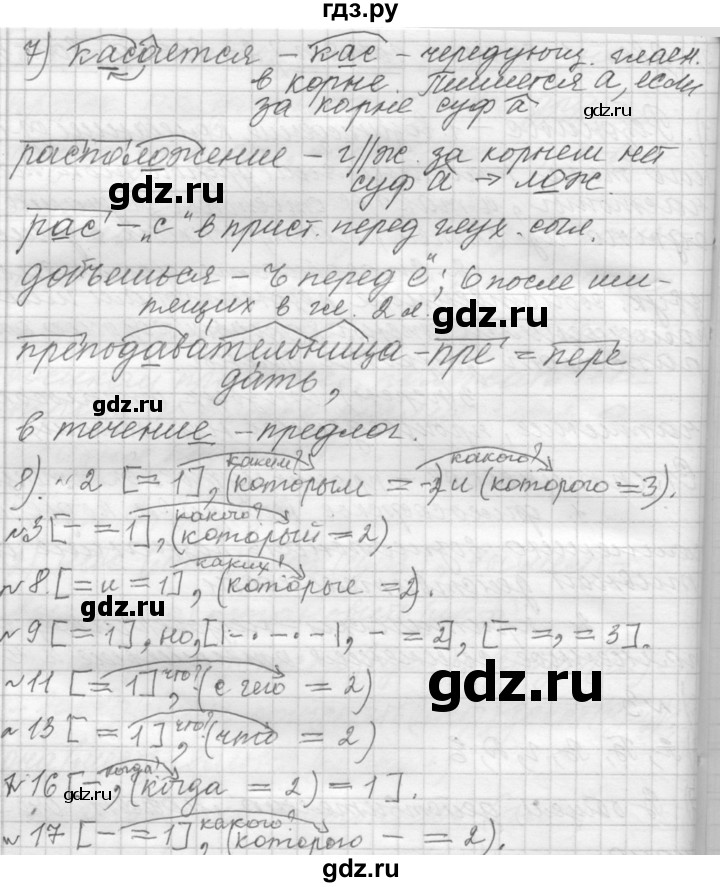 гдз.ру
7) касается – кас – чередующ. гласн.
в корне. Пишется а, если
за корнем суф а
gdz.ru
расположение – г//ж. за корнем нет
gdz.ru
суф а → лож.
gdz.ru
рас – „с" в прист. перед глух. согл.
добъешься – ъ перед „е"; ь после ши-
пящих в гл. 2 л.
gdz.ru
преподавательница – пре = пере
gdz.ru
дать,
в течение – предлог.
каким? какого?
8). №2 [= 1], (которым = –2) и (которого = 3).
gdz.ru
какого?
№3 [– = 1], (который = 2)
gdz.ru
каких?
№8. [= и = 1], (которые = 2).
gdz.ru
№9 [= 1], но, [|–·–·–·–|, – = 2], [– =, = 3].
gdz.ru
что?
№11 [= 1], (с чего = 2)
что?
№13 [= 1], (что = 2)
gdz.ru
когда?
№16 [–, (когда = 2) = 1].
gdz.ru
какого?
№17 [– = 1], (которого – = 2).
gdz.ru